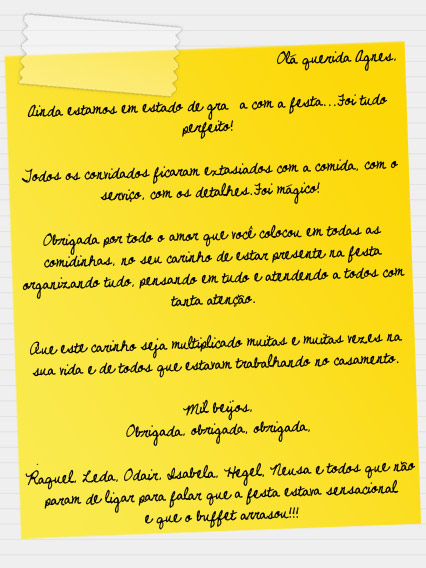 Olá querida Agnes,
Ainda estamos em estado de gra a com a festa...Foi tudo
perfeito!
Todos os convidados ficaram extasiados com a comida, com o
serviço, com os detalhes.Foi mágico!
Obrigada por todo o amor que você colocou em todas as
comidinhas, no seu carinho de estar presente na festa
organizando tudo, pensando em tudo e atendendo a todos com
tanta atenção.
Que este carinho seja multiplicado muitas e muitas vezes na
sua vida e de todos que estavam trabalhando no casamento.
Mil beijos,
Obrigada, obrigada, obrigada,
.
Raquel, Leda, Odair, Isabela, Hegel, Neusa e todos que não
param de ligar para falar que a festa estava sensacional
e que o buffet arrasou!!!